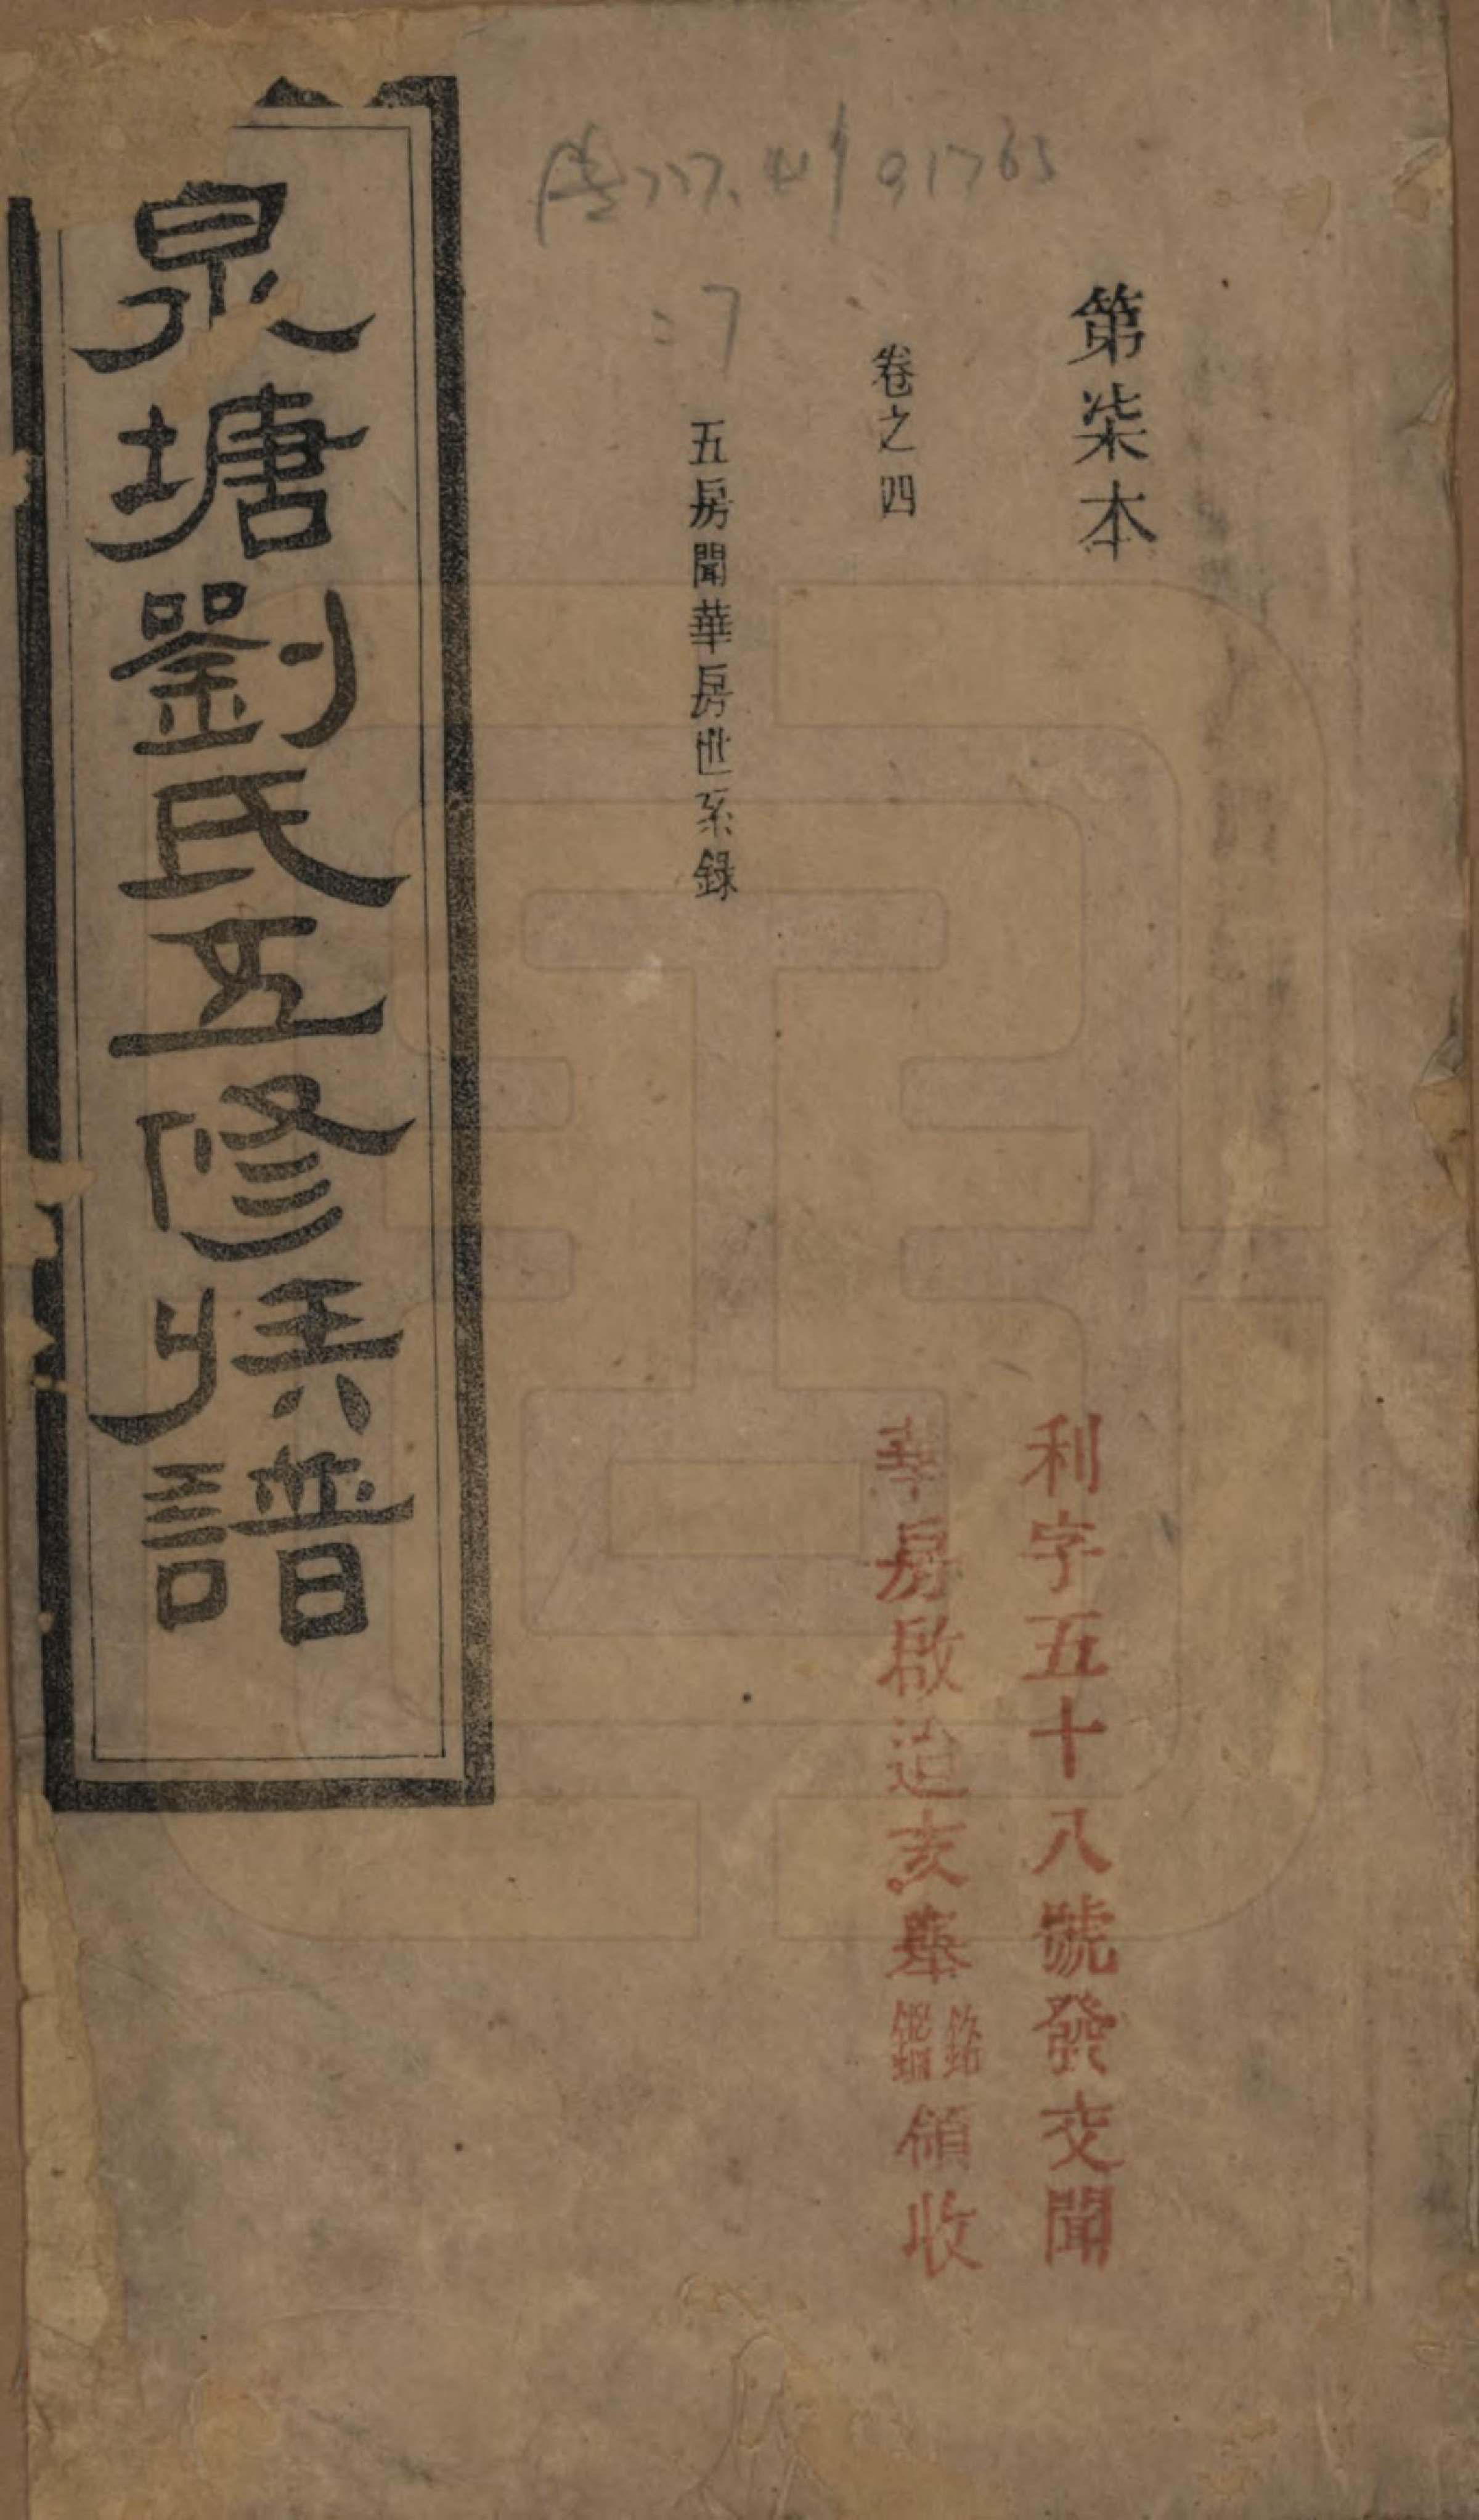 第柒本
卷之四
五房聞華房世系錄
利字五十八號發交聞
華房啟迨亥舉領收
泉塘劉氏五修族譜
777.41 91765
:7